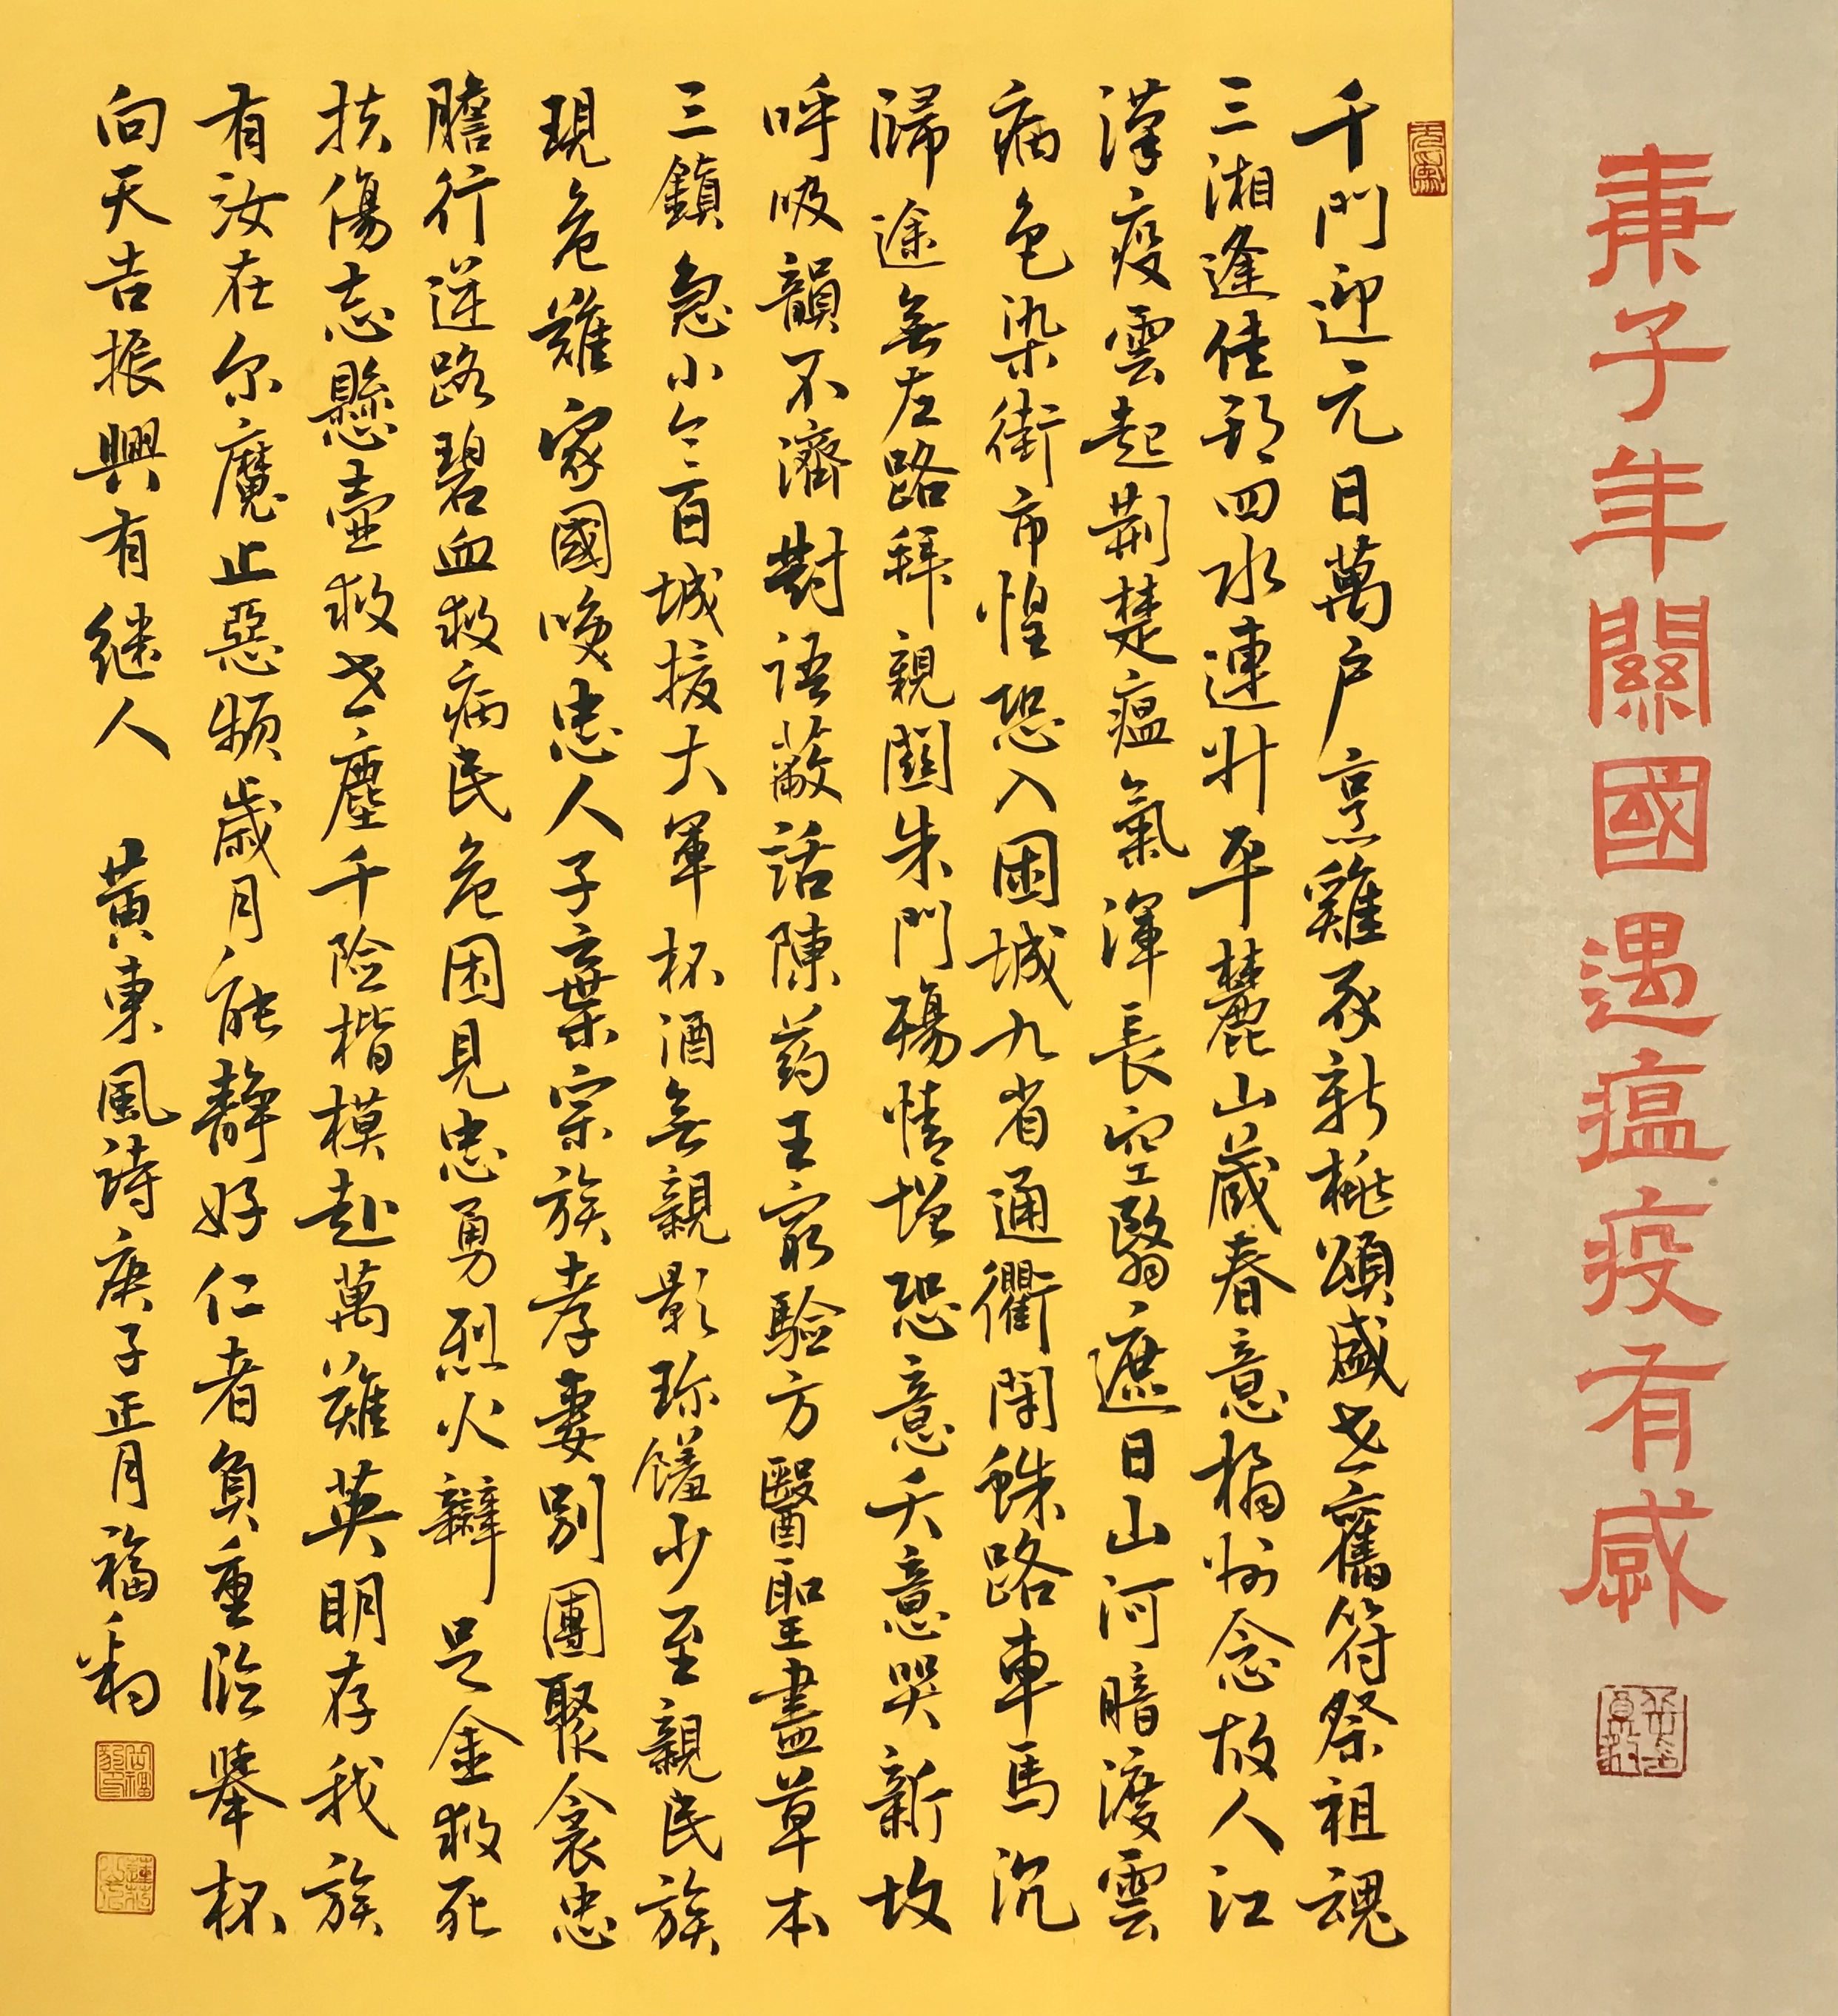 庚子年關國遇瘟疫有感
千門迎元日萬户烹雞豕新桃頌盛世舊符祭祖魂
三湘逢佳節四水連升平麓山藏春意橘州念故人江
漢疫雲起荊楚瘟氣渾長空翳遮日山河暗渡雲
病色染街市惶恐入困城九省通衢閉蛛路車馬沉
歸途無左路拜親關朱門殤情增恐意夭意哭新故
呼吸韻不濟對語蔽話陳药王窮驗方醫聖盡草本
三鎮急小令百城援大軍杯酒無親影珍饈少至親民族
現危難家國喚忠人子棄宗族孝妻別團聚衾忠
膽行逆路碧血救病民危困見忠勇烈火辯足金救死
扶傷志懸壺救世塵千險楷模赴萬難英明存我族
有汝在尔魔止惡頻歲月能靜好仁者負重臨舉杯
向天告振興有继人 黃東風詩庚子正月福豹